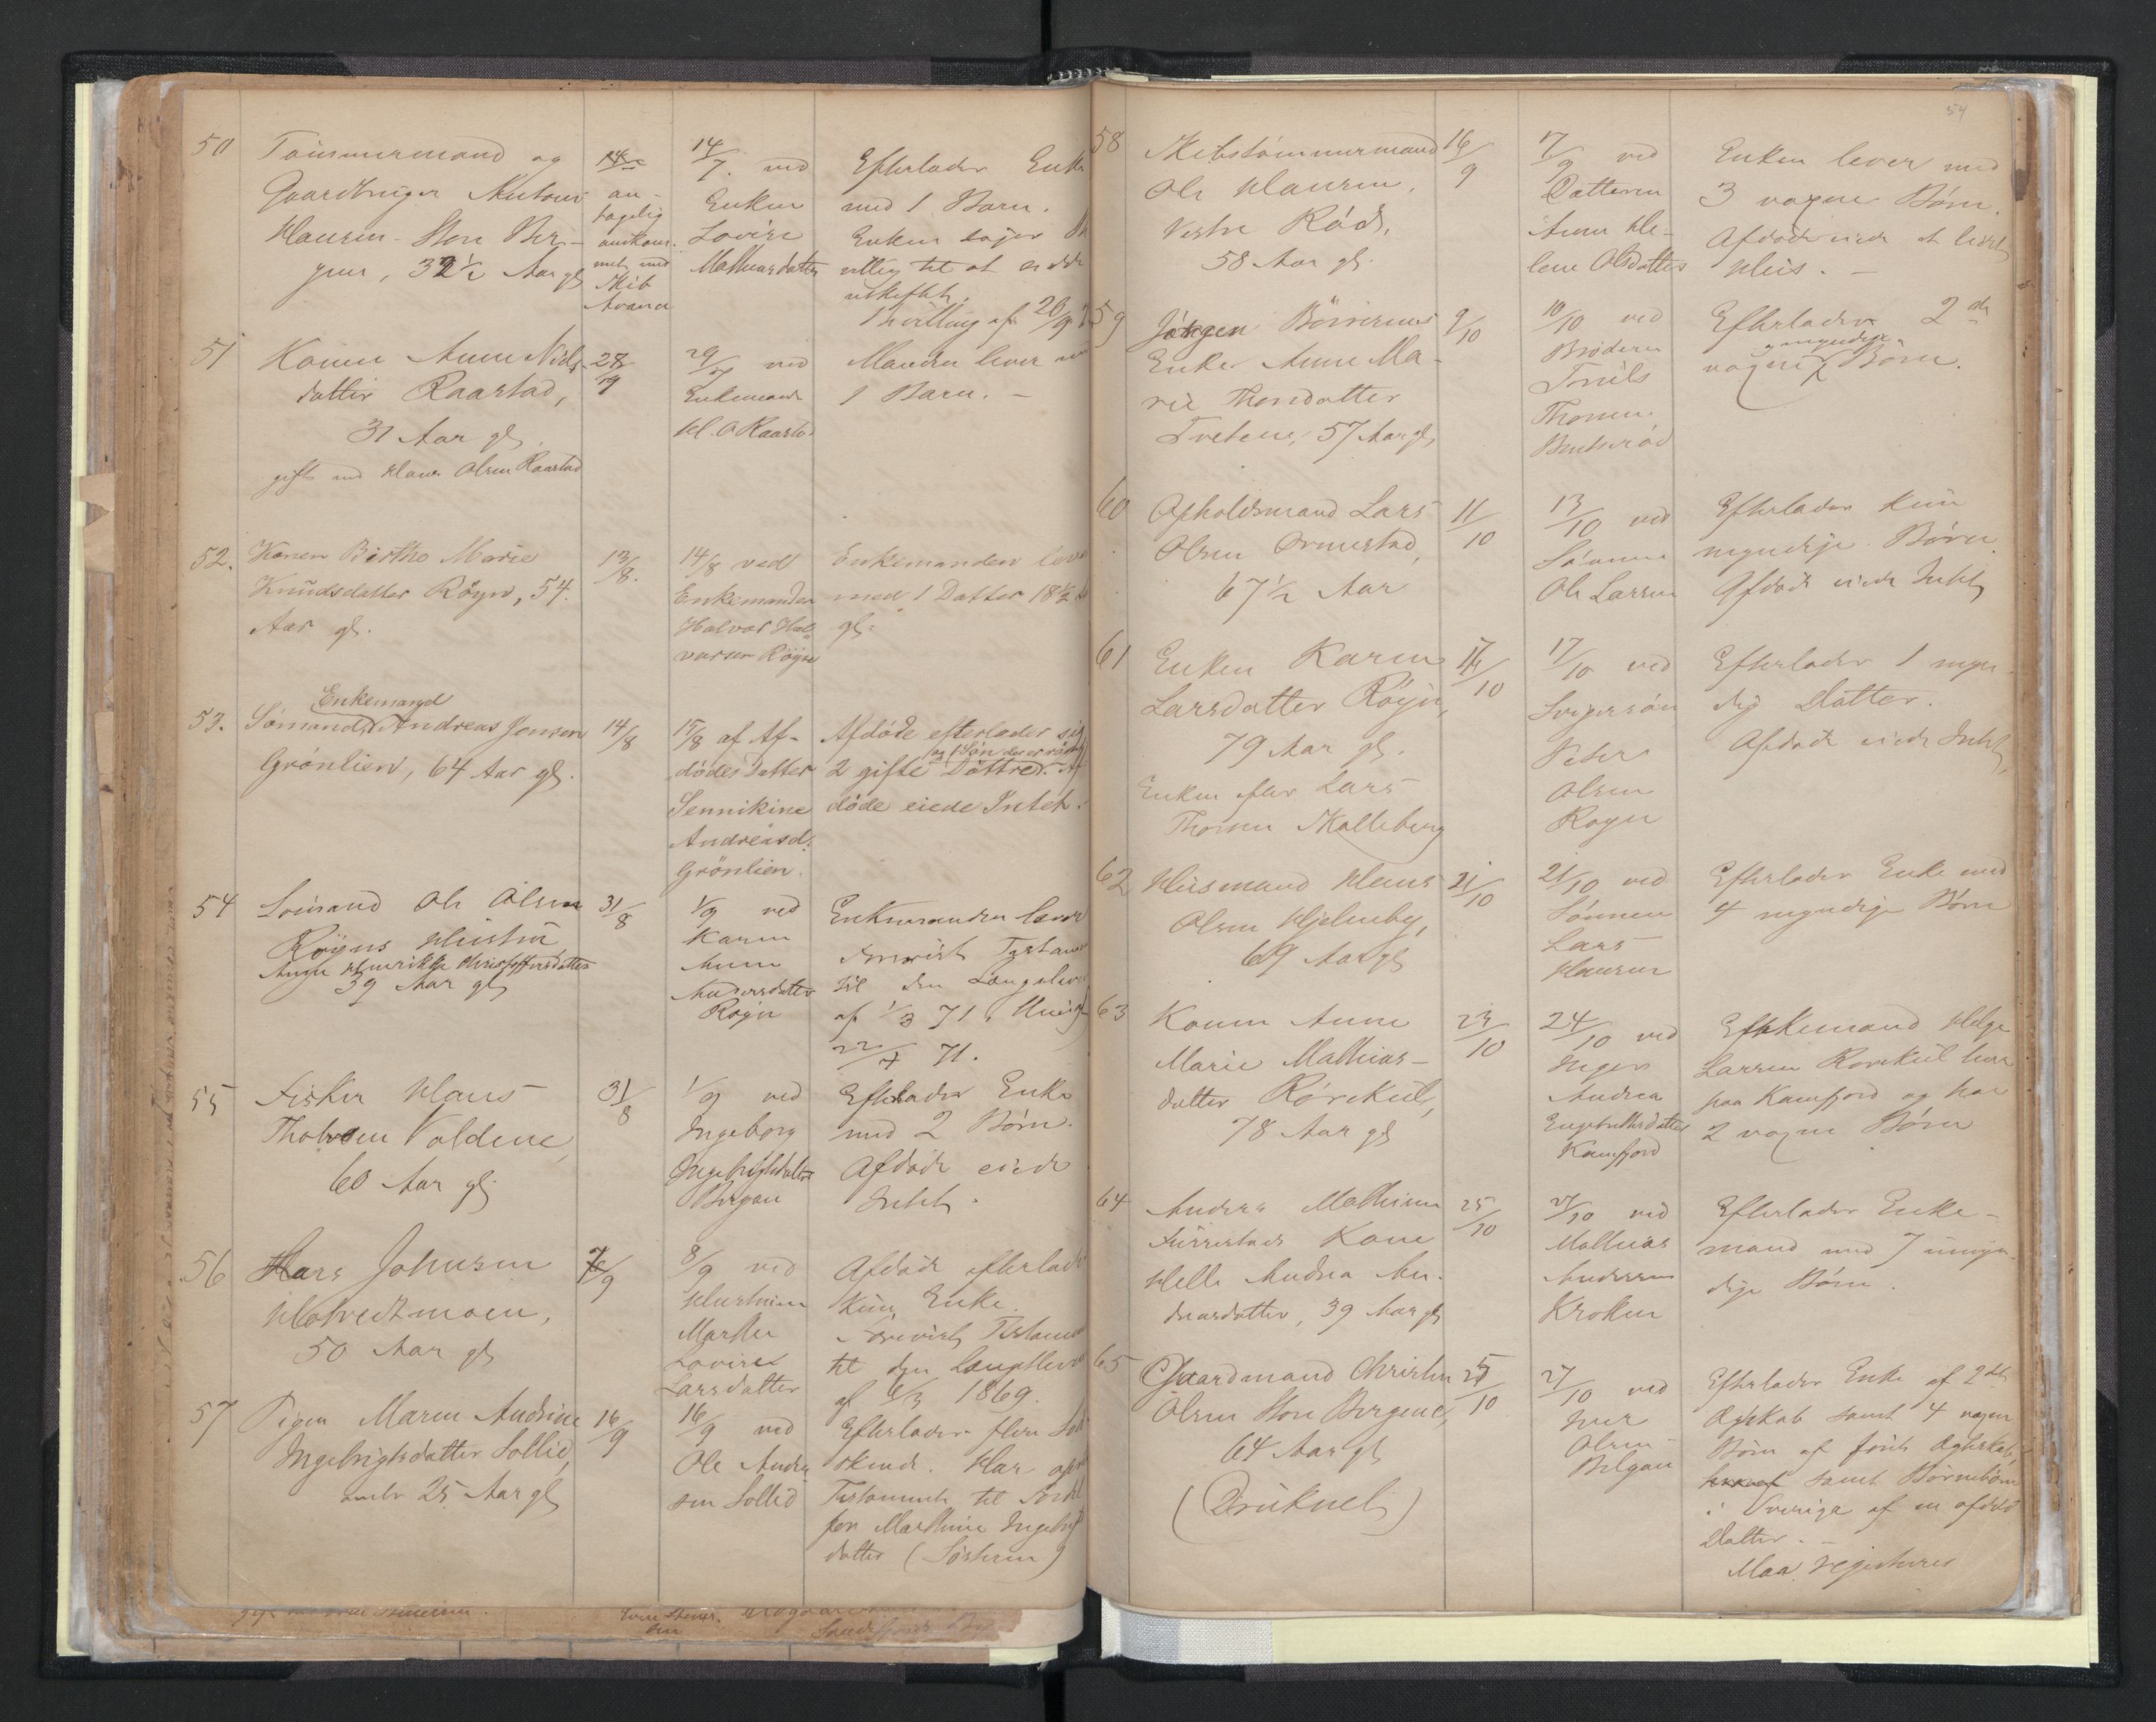 50 Tømmermand og
Gaardbruger Antoni
Hansen Store Ber-
gan, 32½ Aar gl
an-
tagelig
omkom-
met med
Skib
14/7 ved
Enken
Lovise
Mathiasdatter
Efterlader Enke
med 1 Barn.
Enken
villig til at
uskiftet.
af 20/9
51 Konen Anne Niels-
datter Raastad,
31 Aar gl.
gift med Hans Olsen Raastad
28/7
29/7 ved
Enkemand
H. O. Raastad
Manden lever med
1 Barn. —
52. Konen Birthe Marie
Knudsdatter Røyn, 54.
Aar gl.
13/8.
14/8 ved
Enkemanden
Halvor Hal-
vorsen Røyn
Enkemanden lever
med 1 Datter 18½
gl.
Enkemand
53. Sømand Andreas Jensen
Grønlien, 64 Aar gl.
14/8
15/8 af Af-
dødes Datter
Jennikine
Andreasd.
Grønlien.
Afdøde efterlader sig
og 1 Søn der er
2 gifte Døttre. Af-
døde eiede Intet.
54 Sømand Ole Olsen
Røyns Hustru
Henrikke Christoffersdatter
39 Aar gl
31/8
1/9 ved
Karen
Anne
Andersdatter
Røyn
Enkemanden lever
til den Længstlev
af 1/3 71.
22/7 71.
55 Fisker Hans
Thorsen Voldene,
60 Aar gl.
31/8
1/9 ved
Ingeborg
Ingebrigtsdatter
Bergan
Efterlader Enke
med 2 Børn.
Afdøde eiede
Intet.
56 Hans Johnsen
Hotvedtmoen,
50 Aar gl
7/9
8/9 ved
Hustruen
Marthe
Lovise
Larsdatter
Afdøde efterlader
kun Enke.
til den Længstlev
af 6/3 1869.
57 Pigen Maren Andrine
Ingebrigtsdatter Sollid,
25 Aar gl
16/9
16/9 ved
Ole Andr
sen Sollid
Efterlader flere Sød
skende. Har opr
Testamente til Fordel
for Mathine Ingebrigt
datter (Søsteren)
54
58 Skibstømmermand
Ole Hansen,
Vestre Rød,
58 Aar gl.
16/9
17/9 ved
Datteren
Anne He-
lene Olsdatter
Enken lever med
3 voxne Børn.
Afdøde eiede et lidet
Huus. —
59 Jørgen
Enke Anne Ma-
rie Thorsdatter
Tvetene, 57 Aar gl
9/10
10/10 ved
Broderen
Thorsen
Efterlader 2de
myndige
voxne Børn.
60 Opholdsmand Lars
Olsen Ormestad,
67½ Aar
11/10
13/10 ved
Sønnen
Ole Larsen
Efterlader kun
myndige Børn.
Afdøde eiede Intet
61 Enken Karen
Larsdatter Røyn,
79 Aar gl.
Enke efter Lars
Thorsen Skalleberg
17/10
17/10 ved
Svigersøn
Peter
Olsen
Røyn
Efterlader 1 myn-
dig Datter.
Afdøde eiede Intet,
62 Husmand Hans
Olsen Hjelmby,
69 Aar gl
21/10
21/10 ved
Sønnen
Lars
Hansen
Efterlader Enke med
4 myndige Børn
63 Konen Anne
Marie Mathias-
datter Rørekul,
78 Aar gl
23/10
24/10 ved
Inger
Andrea
Engebretsdatter
Kamfjord
Enkemand Helge
Larsen Rørekul lever
paa Kamfjord og har
2 voxne Børn
64 Anders Mathisen
Furrestads Kone
Helle Andrea An-
dreasdatter, 39 Aar gl
25/10
27/10 ved
Mathias
Andersen
Kroken
Efterlader Enke-
mand med 7 umyn-
dige Børn.
65 Gaardmand Christen
Olsen Store Bergene,
64 Aar gl
(Druknet)
25/10
27/10 ved
Iver
Olsen
Bergan
Efterlader Enke af 2det
Ægteskab samt 4 voxne
Børn af første Ægteskab,
samt Børnebørn
i Sverige af en afdød
Datter. —
Maa registreres